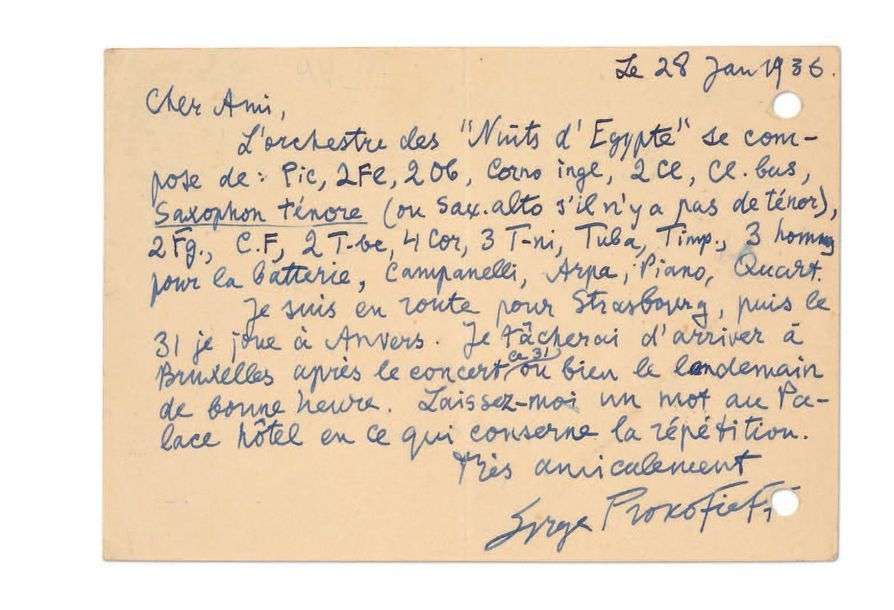 Le 28 Jan 1936.
Cher Ami,
L'orchestre des "Nuits d'Egypte" se com-
pose de: Pic, 2Fl, 2Ob, Corno ingl, 2Cl, Cl.bas,
Saxophon ténore (ou Sax.alto s'il n'y a pas de ténor),
2Fg., C.F, 2 T-be, 4 Cor, 3 T-ni, Tuba, Timp., 3 hommes
pour la batterie, Campanelli, Arpa, Piano, Quart.
Je suis en route pour Strasbourg, puis le
31 je joue à Anvers. Je tâcherai d'arriver à
ce 31
Bruxelles après le concert, ou bien le lendemain
de bonne heure. Laissez-moi un mot au Pa-
lace hôtel en ce qui conserne la répétition.
Très amicalement
Serge Prokofieff